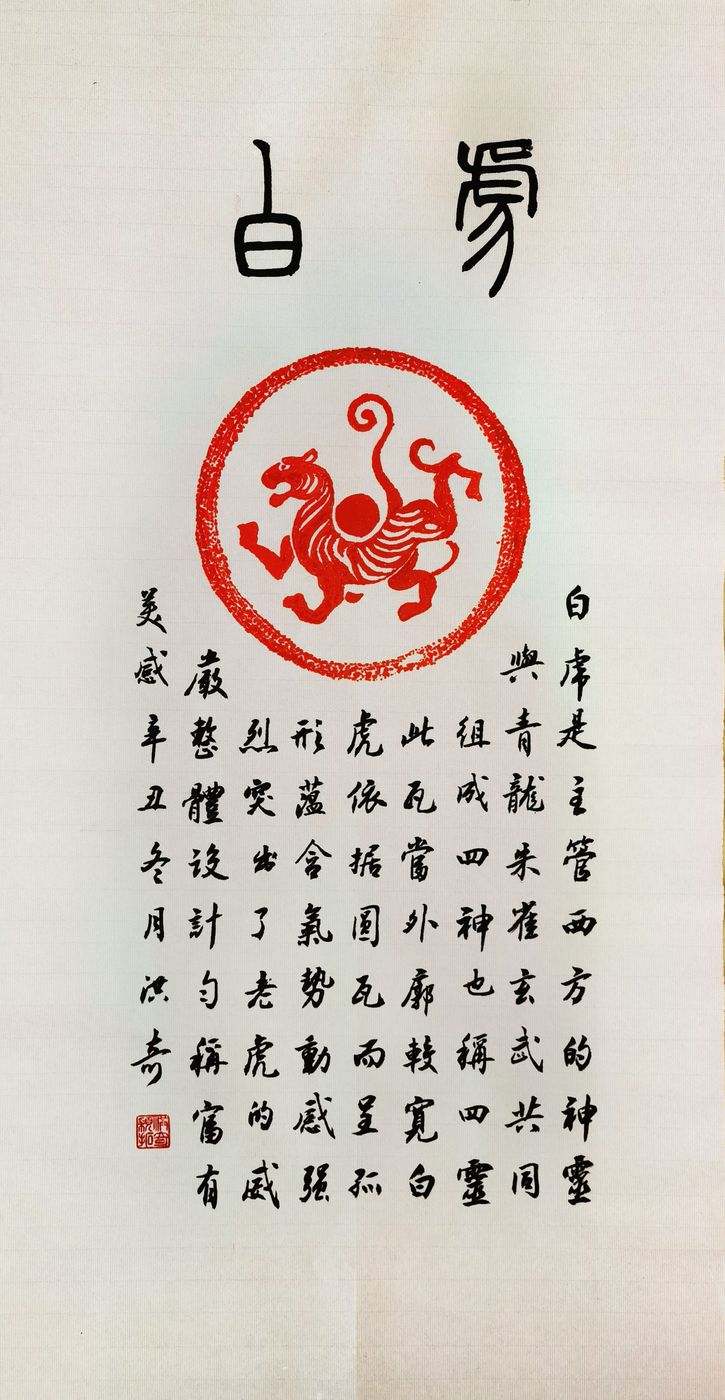 白虎
白虎是主管西方的神靈
與青龍朱雀玄武共同
組成四神也稱四靈
此瓦當外廓較寬白
虎依据圓瓦而呈孤
形薀含氣勢動感强
烈突出了老虎的威
嚴整體設計勻稱富有
美感辛丑冬月洪奇